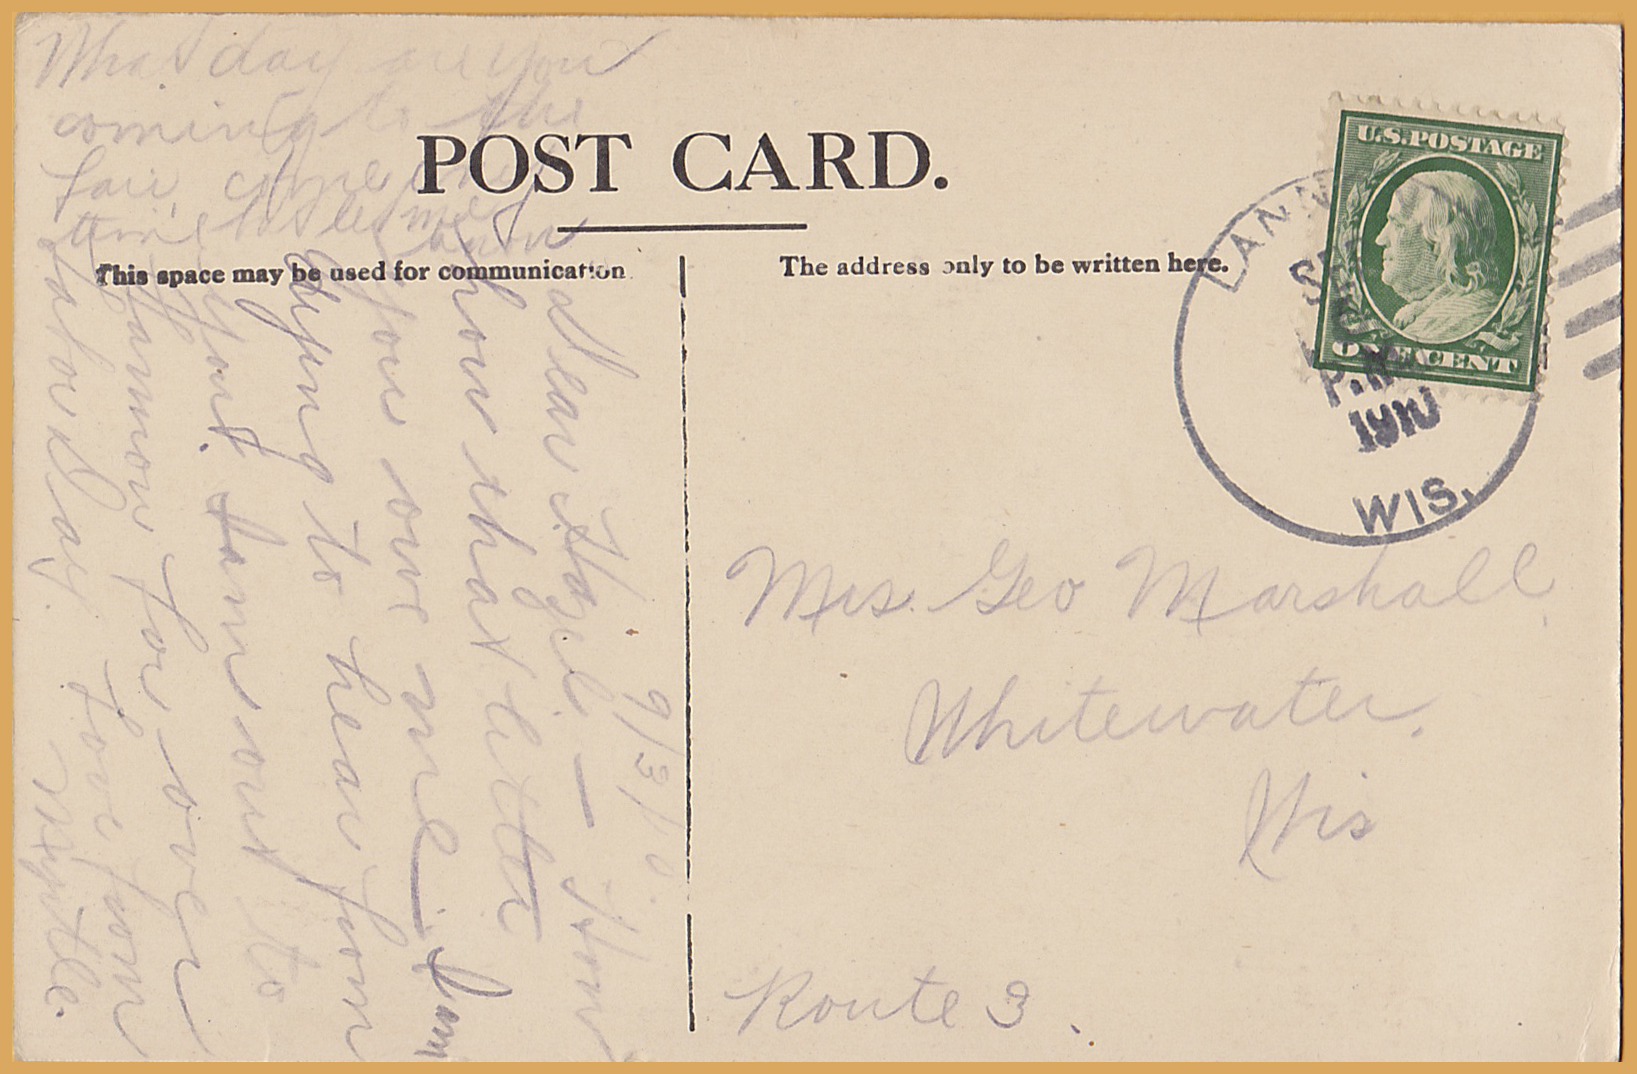 What day are you
coming to the
fair, come
time to see me
POST CARD.
This space may be used for communication
The address only to be written here.
U.S. POSTAGE
ONE CENT
LANN
SEP
P.M.
1910
WIS.
9/3/10.
Dear Hazel — How
how that letter
you owe me — I am
dying to hear from
you. Am out to
for over
Labor Day. Love from
Myrtle.
Mrs. Geo Marshall,
Whitewater,
Wis
Route 3.